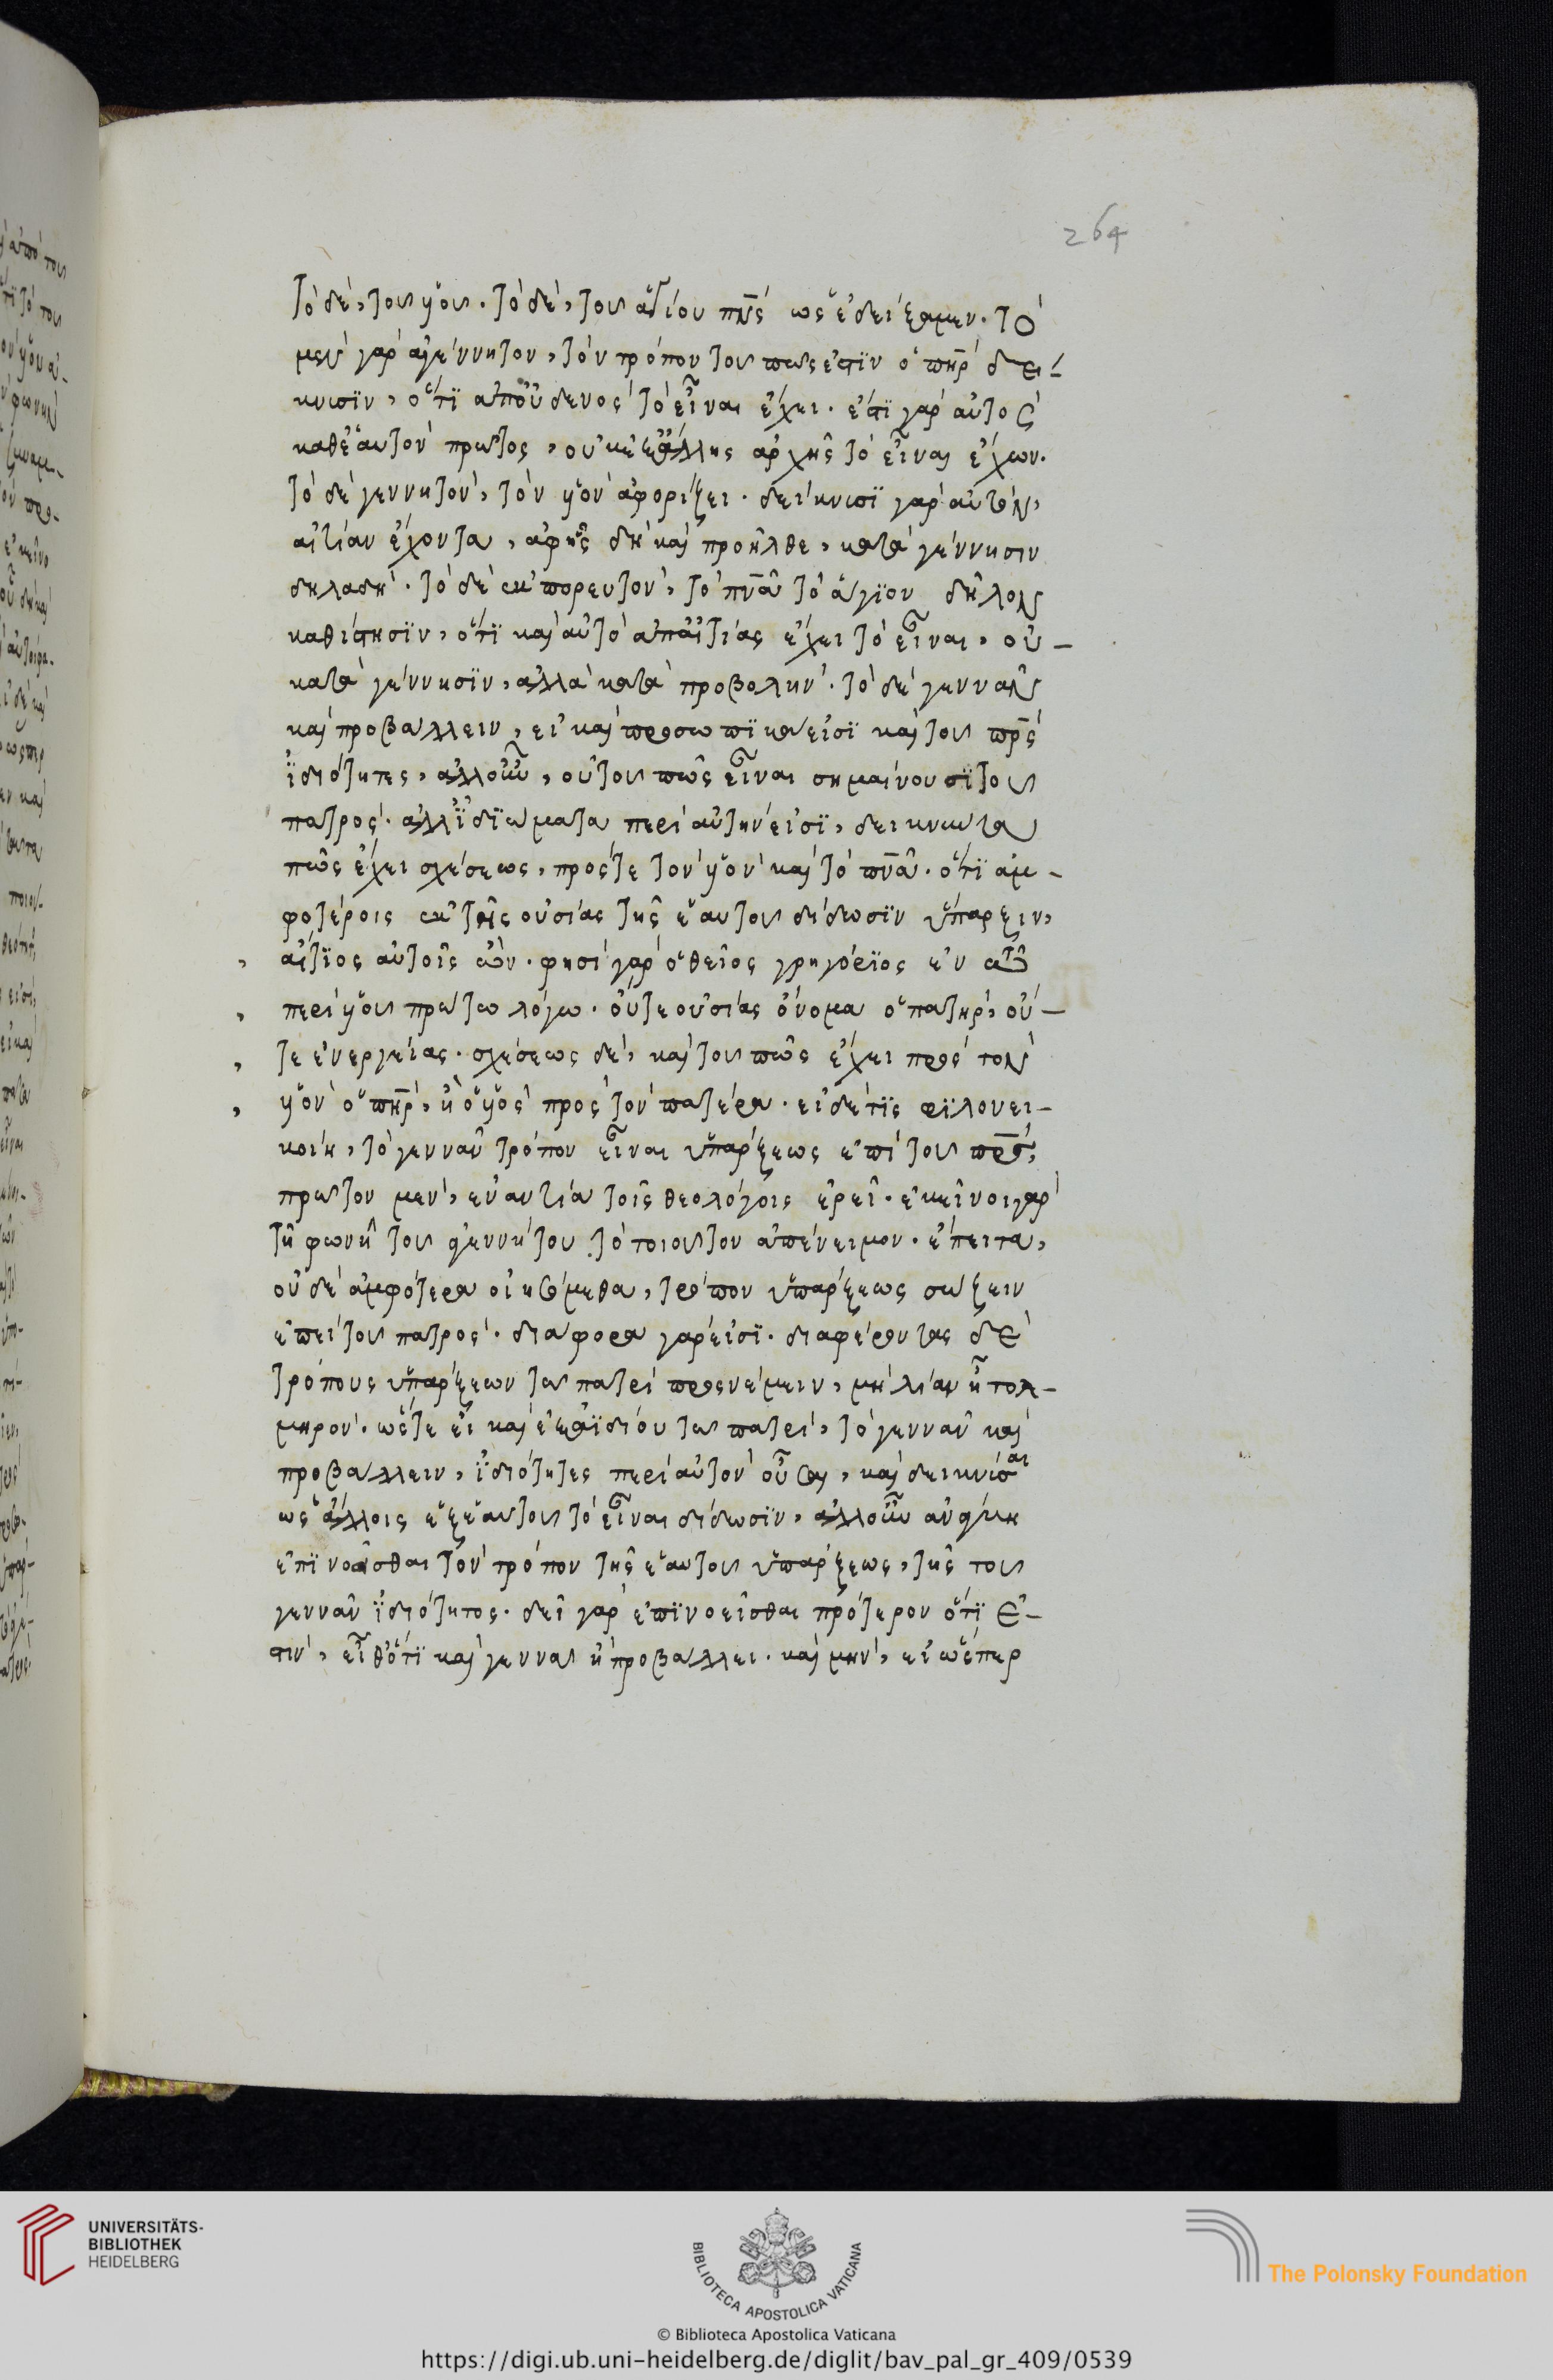 264
τὸ δὲ, τοῦ υἱοῦ. τὸ δὲ, τοῦ ἁγίου πνς ὡς ἐδείξαμεν. τὸ
μὲν γὰρ ἀγέννητον, τὸν τρόπον τοῦ πῶς ἐστϊν ὁ πηρ δει-
κνυσϊν, ὅτϊ ἀπ οὐδενὸς τὸ εἶναι ἔχει. ἔστϊ γὰρ αὐτὸς
καθ ἑαυτὸν πρῶτος, οὐκ ἐξ ἄλλης ἀρχῆς τὸ εἶναι ἔχων.
τὸ δὲ γεννητὸν, τὸν υἱὸν ἀφορίζει. δείκνυσϊ γὰρ αὐτὸν,
αἰτίαν ἔχοντα, ἀφ ἧς δὴ καὶ προῆλθε, κατὰ γέννησιν
δηλαδή. τὸ δὲ ἐκπορευτὸν, τὸ πνα τὸ ἅγϊον δῆλον
καθίστησϊν, ὅτϊ καὶ αὐτὸ ἀπ αἰτίας ἔχει τὸ εἶναι, οὐ-
κατὰ γέννησϊν, ἀλλὰ κατὰ προβολήν. τὸ δὲ γεννᾶν
καὶ προβάλλειν, εἰ καὶ προσωπϊκαὶ εἰσϊ καὶ τοῦ πρς
ϊδιότητες, ἀλλ οὖν, οὐ τοῦ πῶς εἶναι σημαίνουσϊ τοῦ
πατρός. ἀλλ ϊδϊώματα περὶ αὐτὴν εἰσϊ, δεικνύντα
πῶς ἔχει σχέσεως, πρός τε τὸν υἱὸν καὶ τὸ πνα. ὅτϊ ἀμ-
φοτέροις ἐκ τῆς οὐσίας τῆς ἑαυτοῦ δίδωσϊν ὕπαρξιν,
αἴτϊος αὐτοῖς ὤν. φησὶ γὰρ ὁ θεῖος γρηγόρϊος ἐν τῶ
περὶ υἱοῦ πρώτω λόγω. οὔτε οὐσίας ὄνομα ὁ πατὴρ, οὔ-
τε ἐνεργείας. σχέσεως δὲ, καὶ τοῦ πῶς ἔχει πρὸς τὸν
υἱὸν ὁ πηρ, ἢ ὁ υἱὸς πρὸς τὸν πατέρα. εἰ δέ τϊς φϊλονει-
κοίη, τὸ γεννᾶν τρόπον εἶναι ὑπάρξεως ἐπὶ τοῦ πρς,
πρῶτον μὲν, ἐναντία τοῖς θεολόγοις ἐρεῖ. ἐκεῖνοι γὰρ
τῇ φωνῇ τοῦ ἀγεννήτου τὸ τοιοῦτον ἀπένειμον. ἔπειτα,
οὐδὲ ἀμφότερα οἰησόμεθα, τρόπον ὑπάρξεως σώζειν
ἐπεὶ τοῦ πατρός. διάφορα γάρ εἰσϊ. διαφέροντας δὲ
τρόπους ὑπάρξεων τῶ πατρὶ προσνέμειν, μὴ λίαν ᾖ τολ-
μηρόν. ὥστε εἰ καὶ ἐξ ἀϊδίου τῶ πατρὶ, τὸ γεννᾶν καὶ
προβάλλειν, ϊδιότητες περὶ αὐτὸν οὖσαι, καὶ δεικνῦσαι
ὡς ἄλλοις ἐξ ἑαυτοῦ τὸ εἶναι δίδωσϊν, ἀλλ οὖν ἀνάγκη
ἐπϊνοεῖσθαι τὸν τρόπον τῆς ἑαυτοῦ ὑπάρξεως, τῆς τοῦ
γεννᾶν ϊδιότητος. δεῖ γὰρ ἐπϊνοεῖσθαι πρότερον ὅτϊ ἔ-
στιν, εἶθ ὅτϊ καὶ γεννᾶ ἢ προβάλλει. καὶ μὴν, εἰ ὥσπερ
UNIVERSITÄTS-
BIBLIOTHEK
HEIDELBERG
BIBLIOTECA APOSTOLICA VATICANA
The Polonsky Foundation
© Biblioteca Apostolica Vaticana
https://digi.ub.uni-heidelberg.de/diglit/bav_pal_gr_409/0539